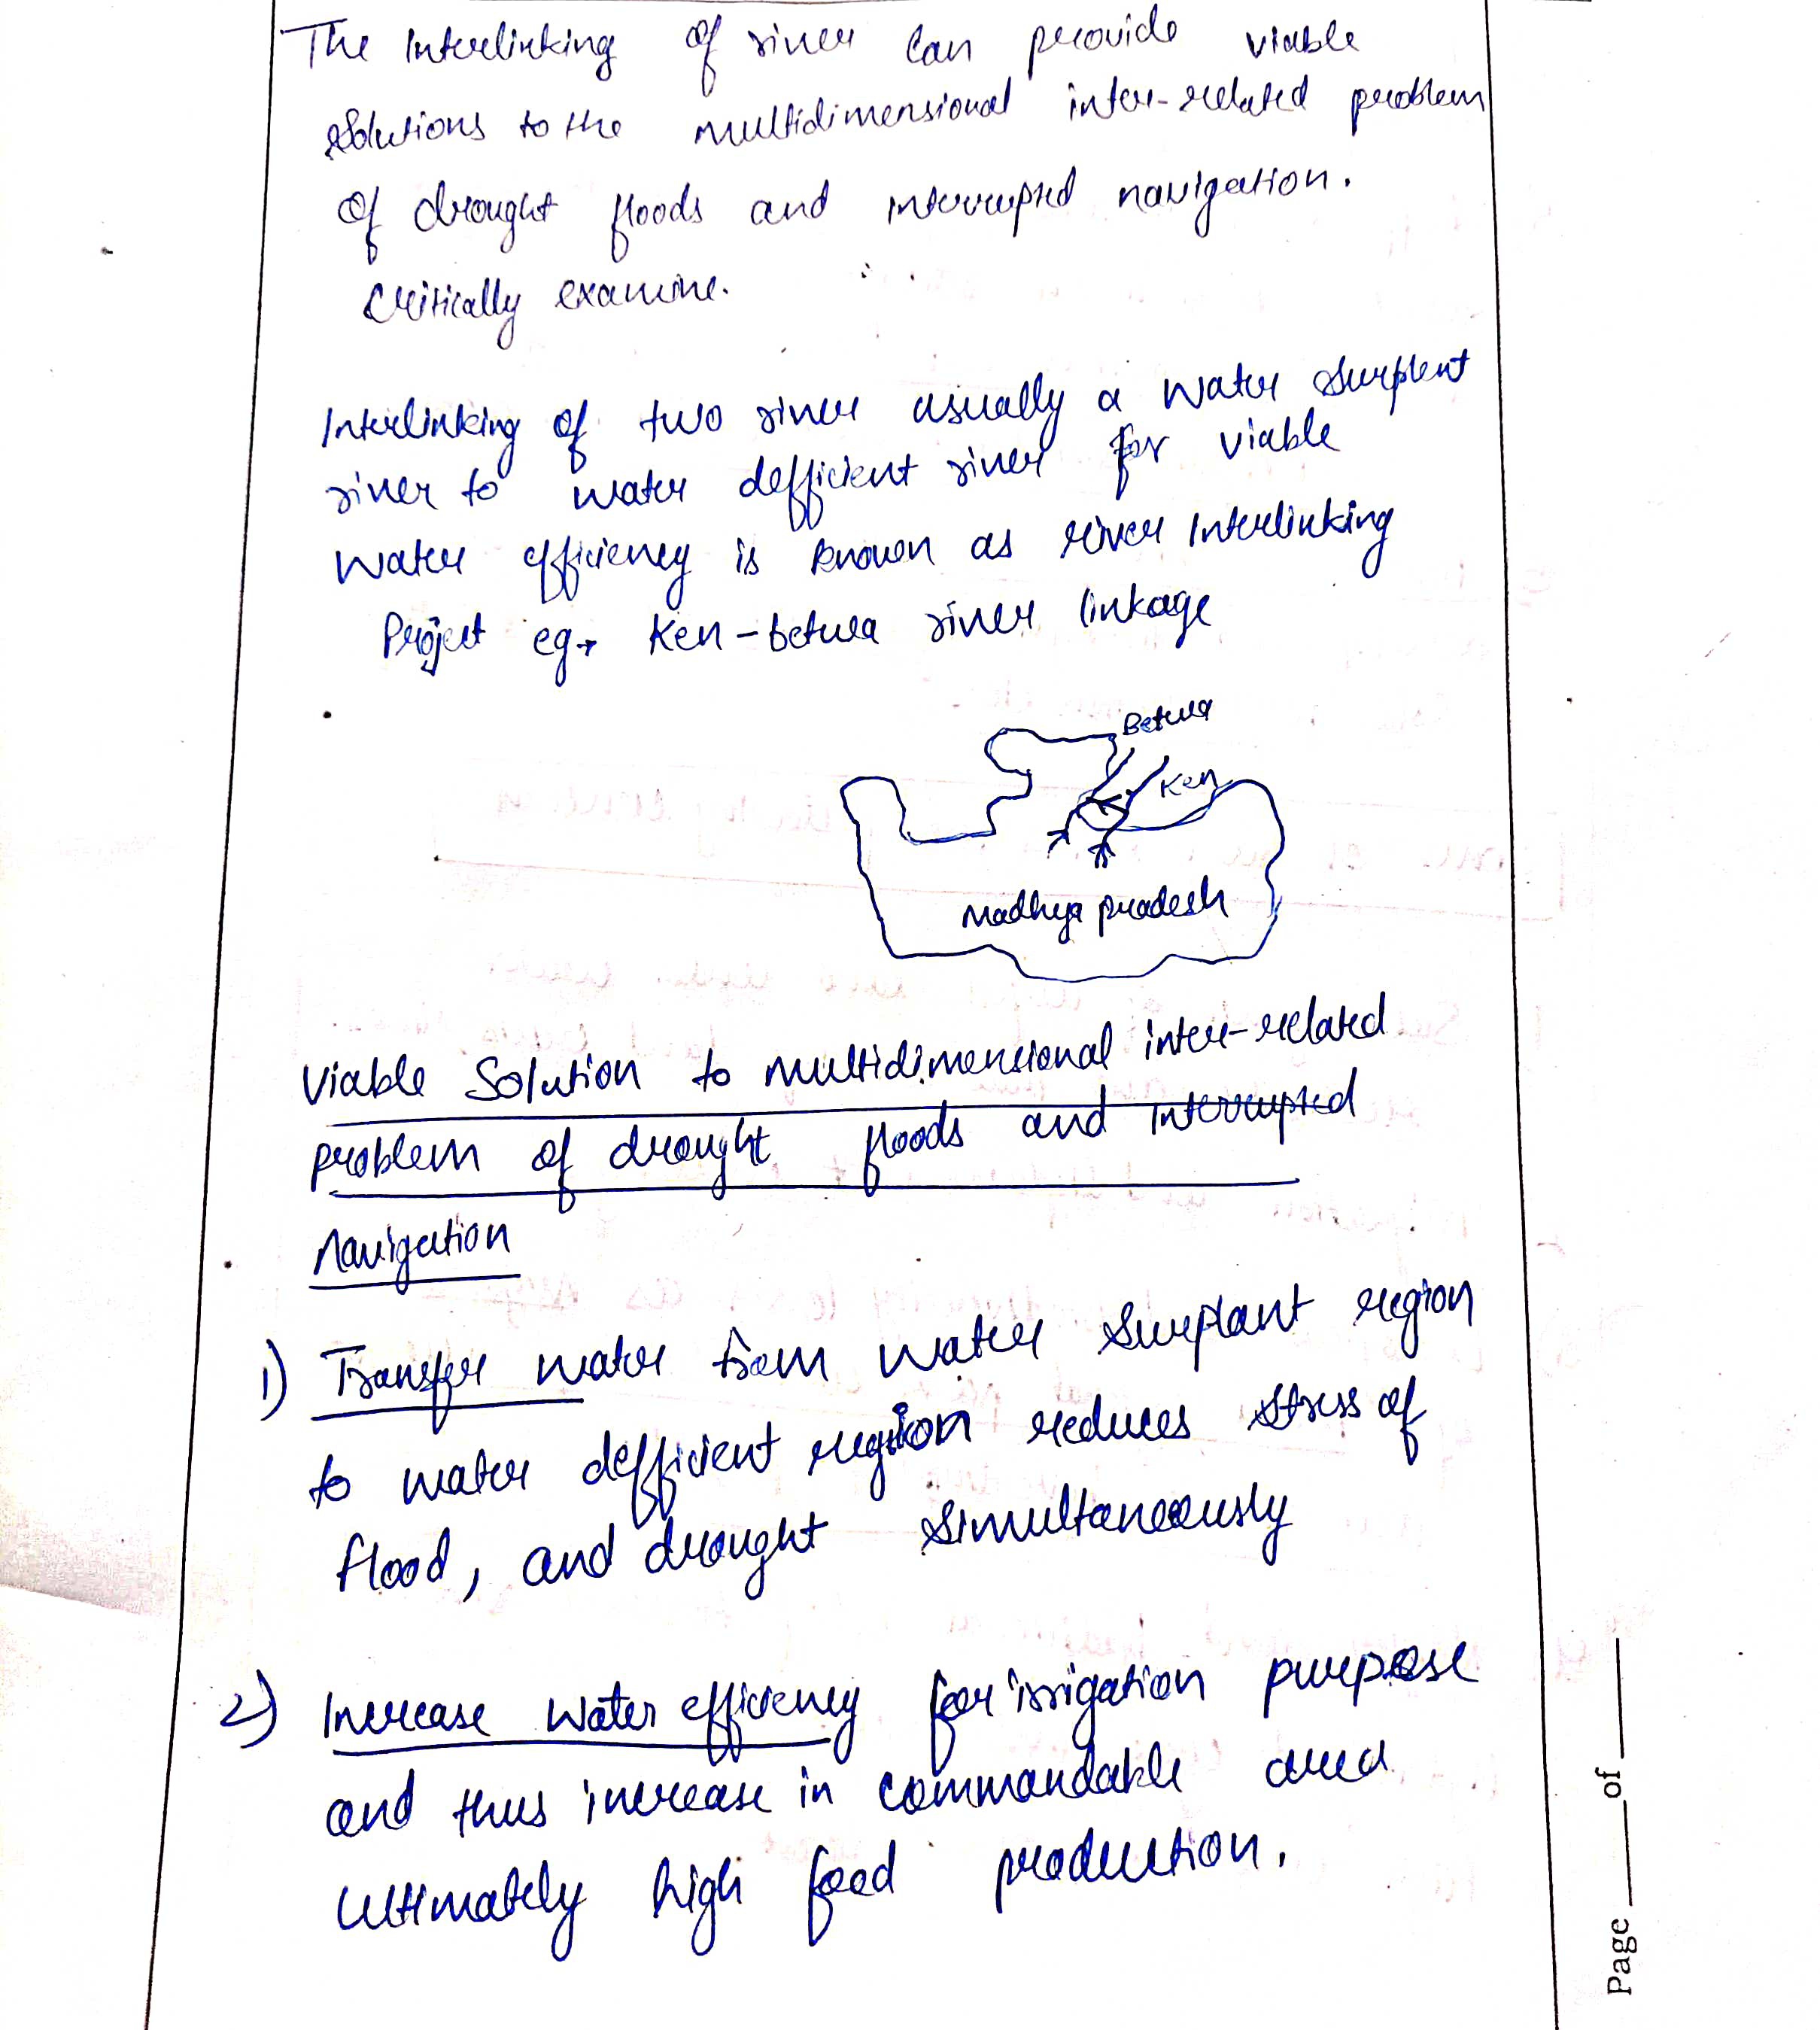 The Interlinking of river can provide viable
solutions to the multidimensional inter-related problem
of drought floods and interrupted navigation.
Critically examine.
Interlinking of two river usually a water surplent
river to water defficient river for viable
water efficiency is known as river Interlinking
Project eg→ Ken-betwa river linkage
Betwa
Ken
Madhya pradesh
Viable Solution to multidimensional inter-related
problem of drought floods and Interrupted
Navigation
1) Transfer water from water Surplant region
to water defficient region reduces stress of
flood, and drought simultaneously
2) Increase water efficiency for irrigation purpose
and thus increase in commandable area
Ultimately high food production.
Page ____ of ____